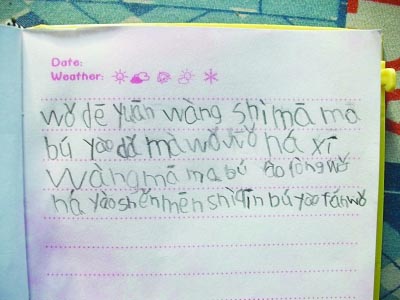 Date:
Weather:
wǒ dē yuān wàng shì mā mā
bú yao dǎ ma wǒ wǒ há xī
wàng mā ma bú wǒ
há yào shěn mēn shì qīn bú yao wǒ